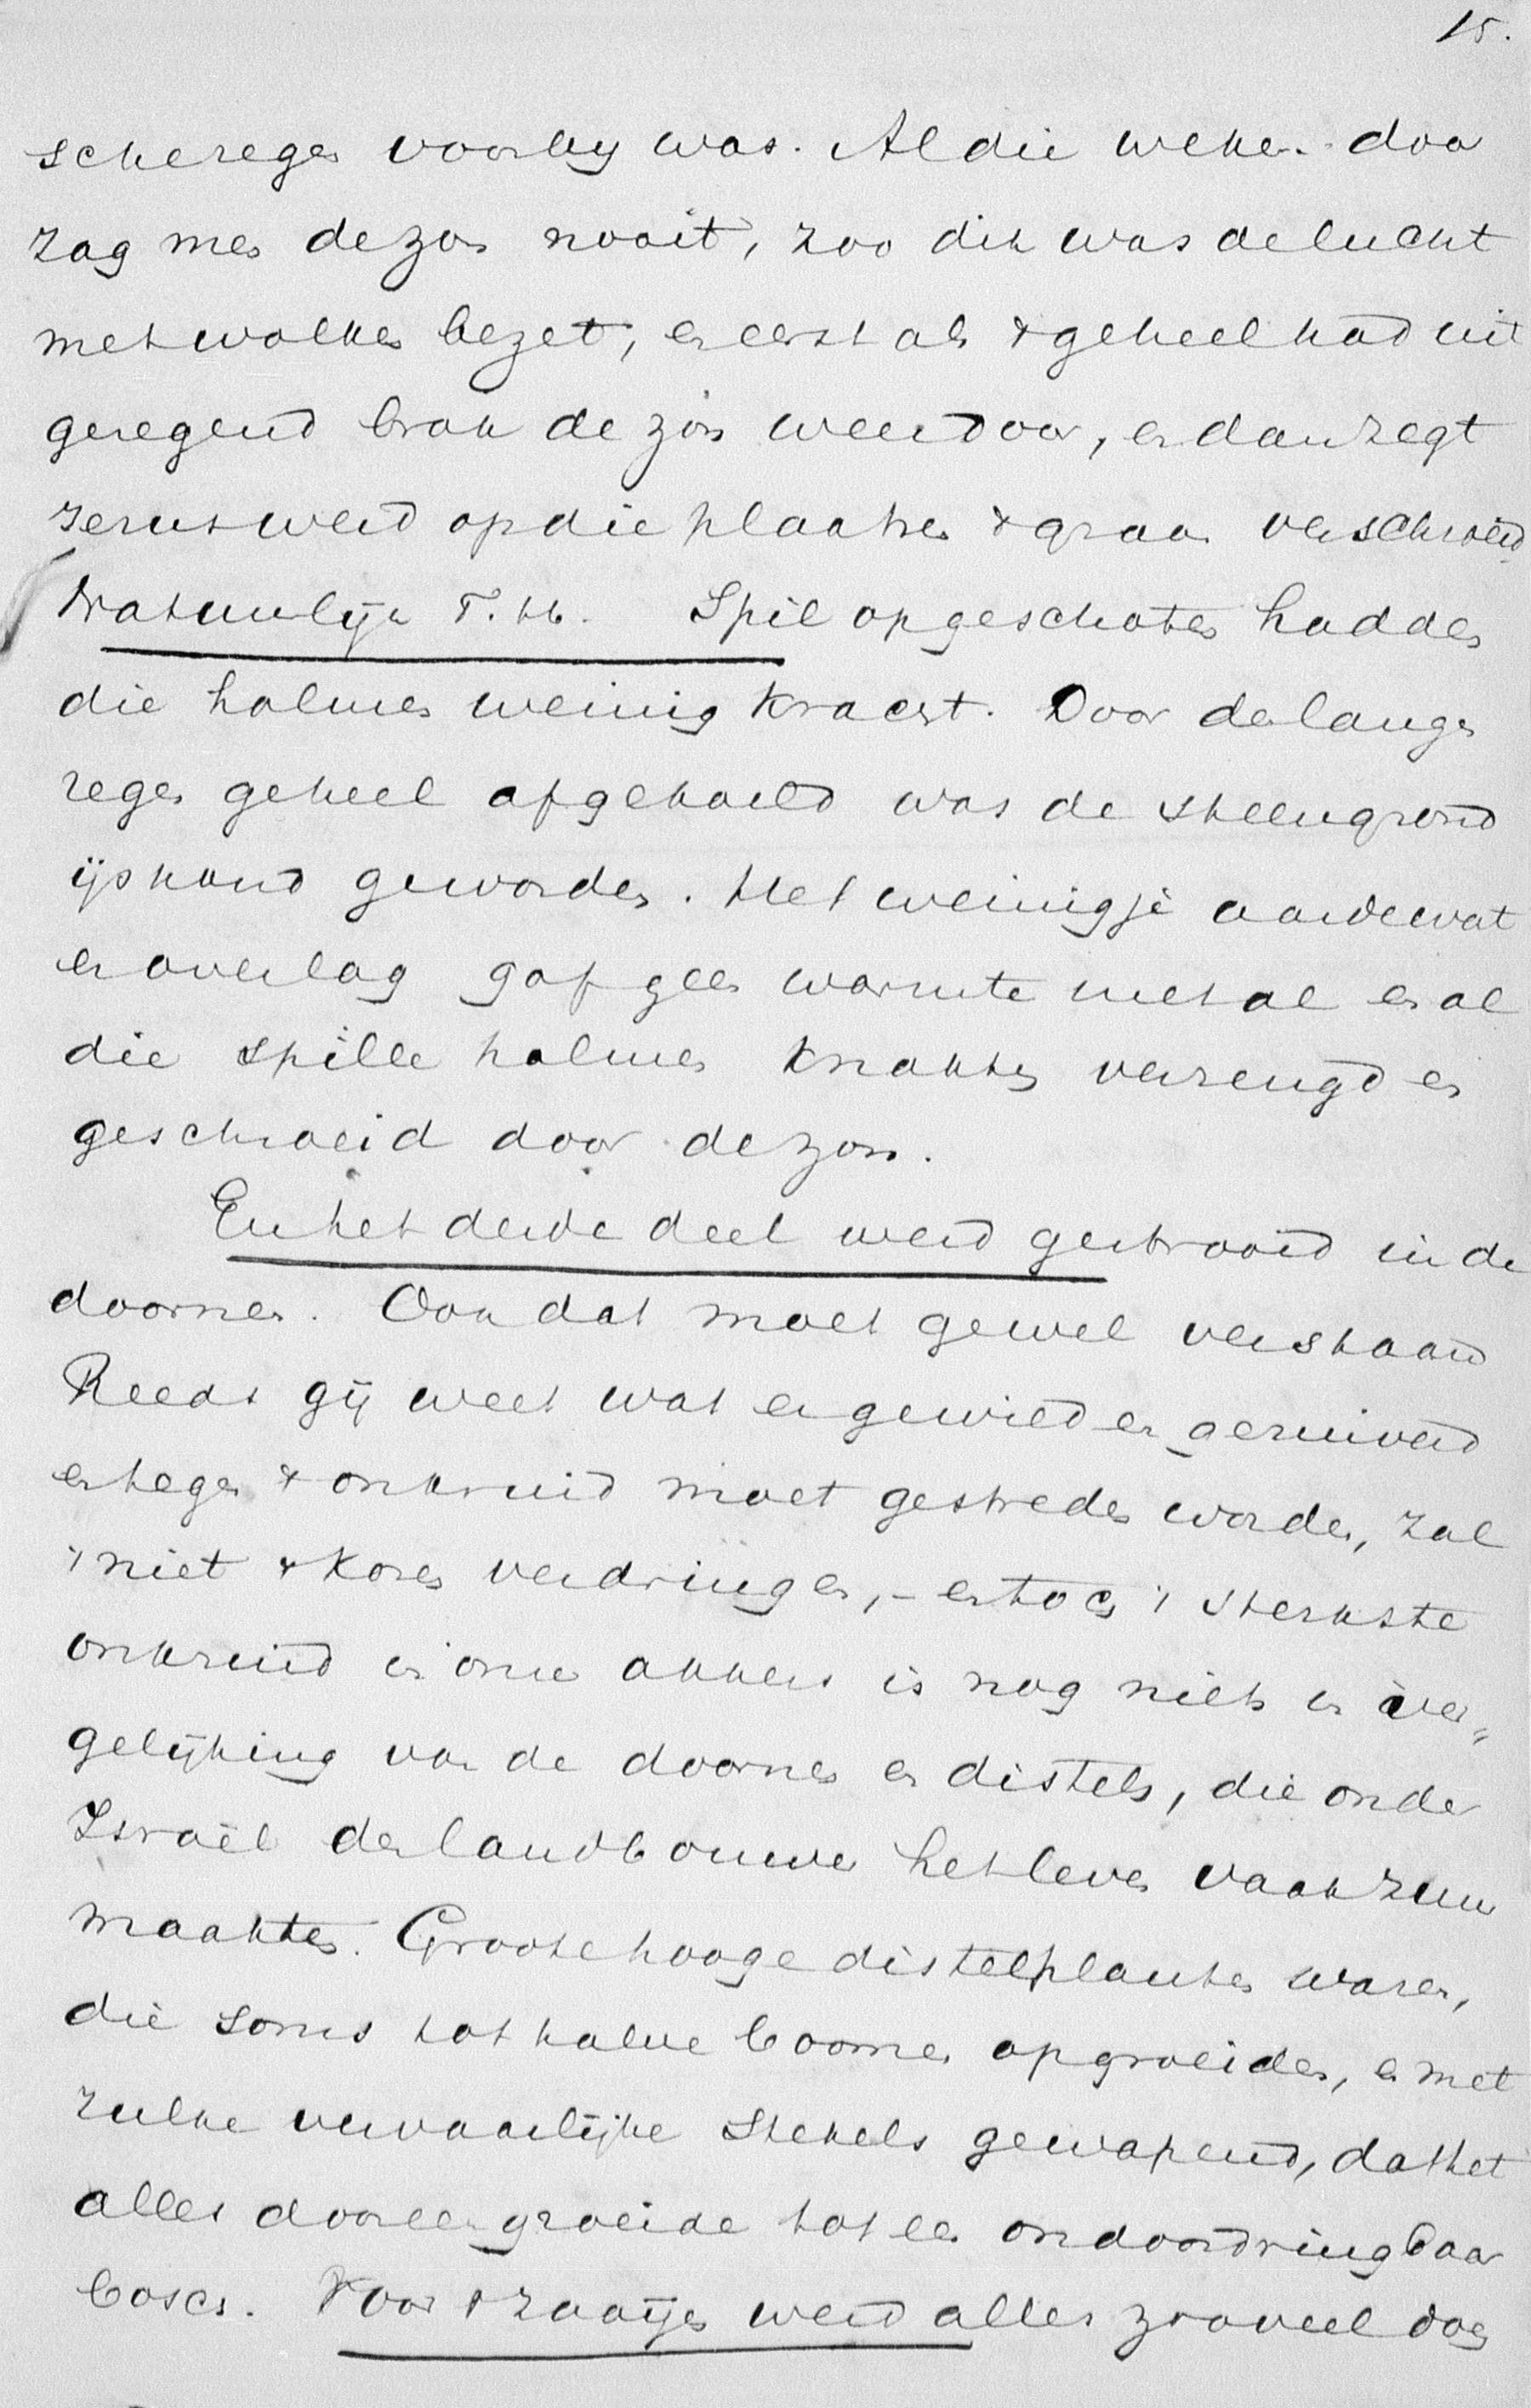 15.
scheregen voorbij was. Al die weken door
zag men de zon nooit, zoo dik was de lucht
met wolken bezet, en eerst als 't geheel had uit
geregend brak de zon weer door, en dan zegt
Jezus werd op die plaatsen 't graan verschroeid
Natuurlijk T.H. Spil opgeschoten hadden
die halmen weinig kracht. Door de lange
regen geheel afgekoeld was de steengrond
ijskoud geworden. Het weinigje aarde wat
er over lag gaf geen warmte met al en al
die spille halmen knakten verzengd en
geschroeid door de zon.
En het derde deel werd gestrooid in de
doornen. Ook dat moet ge wel verstaan
Reeds gij weet wat er gewied en gezuiverd
en tegen 't onkruid moet gestreden worden, zal
't niet 't koren verdringen, - en toch 't sterkste
onkruid in onze akkers is nog niets in ver„
gelijking van de doornen en distels, die onder
Israël den landbouwer het leven vaak zuur
maakten. Groote hooge distelplanten waren,
die soms tot halve boomen opgroeiden, en met
zulke vervaarlijke stekels gewapend, dat het
alles dooreen groeide tot een ondoordringbaar
bosch. Voor 't zaaijen werd alles zooveel doen